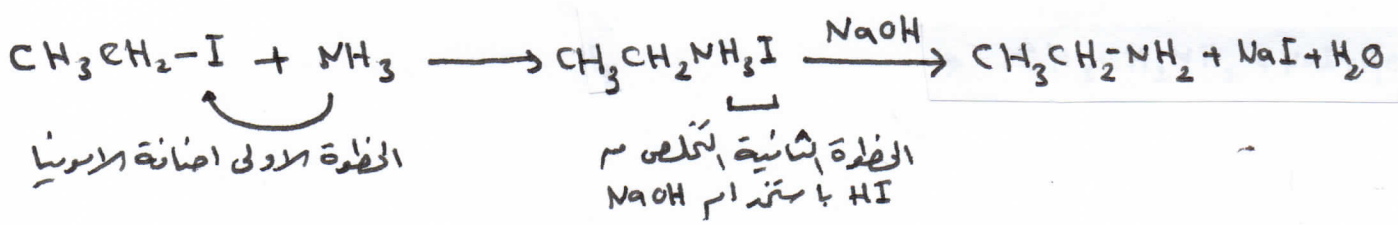 CH₃CH₂-I + NH₃ → CH₃CH₂NH₃I NaOH → CH₃CH₂-NH₂ + NaI + H₂O
الخطوة الاولى اضافة الامونيا
الخطوة الثانية التخلص من
HI باستخدام NaOH